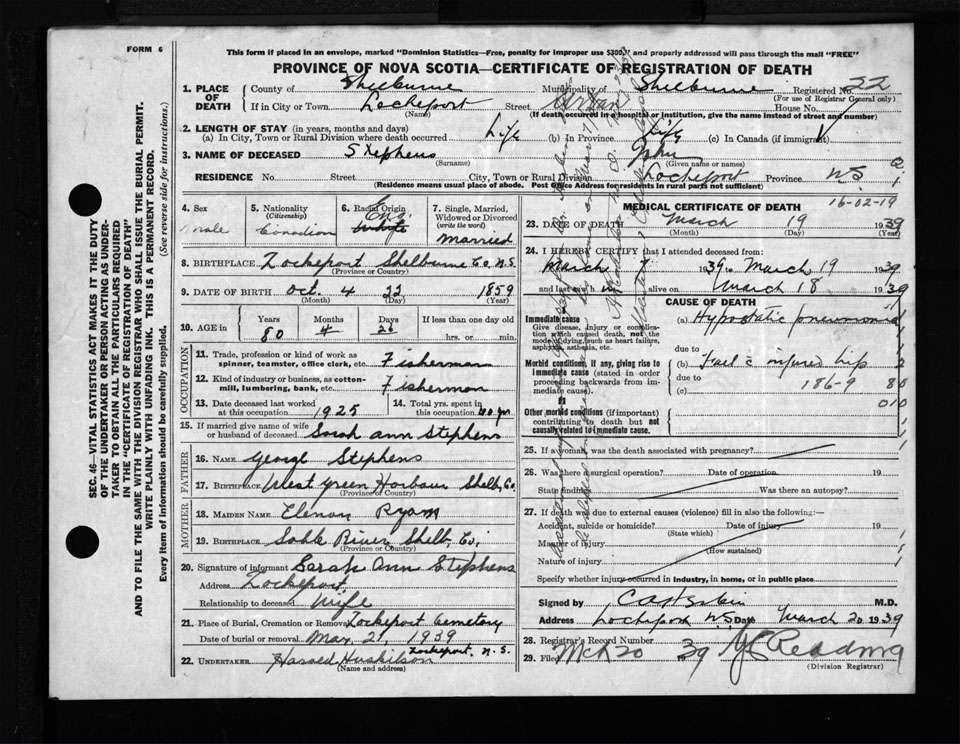 FORM 6
This form if placed in an envelope, marked "Dominion Statistics—Free, penalty for improper use $300," and properly addressed will pass through the mail "FREE"
PROVINCE OF NOVA SCOTIA—CERTIFICATE OF REGISTRATION OF DEATH
1. PLACE OF DEATH
County of Shelburne Municipality of Shelburne Registered No. 22
(For use of Registrar General only)
If in City or Town Lockeport Street House No.
(Name) (If death occurred in a hospital or institution, give the name instead of street and number)
2. LENGTH OF STAY (in years, months and days)
(a) In City, Town or Rural Division where death occurred Life (b) in Province Life (c) In Canada (if immigrant)
3. NAME OF DECEASED Stephens John
(Surname) (Given name or names)
RESIDENCE No. Street City, Town or Rural Division Lockeport Province N.S.
(Residence means usual place of abode. Post Office Address for residents in rural parts not sufficient)
4. Sex
male
5. Nationality
(Citizenship)
Canadian
6. Racial Origin
Eng.
White
7. Single, Married, Widowed or Divorced
(write the word)
Married
8. BIRTHPLACE Lockeport Shelburne Co. N.S.
(Province or Country)
9. DATE OF BIRTH Oct. 4 22 1859
(Month) (Day) (Year)
10. AGE in
Years Months Days If less than one day old
80 4 26 hrs. or min.
OCCUPATION
11. Trade, profession or kind of work as spinner, teamster, office clerk, etc. Fisherman
12. Kind of industry or business, as cotton-mill, lumbering, bank, etc. Fisherman
13. Date deceased last worked at this occupation 1925
14. Total yrs. spent in this occupation 40 yr
15. If married give name of wife or husband of deceased Sarah Ann Stephens
FATHER
16. NAME George Stephens
17. BIRTHPLACE West Green Harbour Shelb. Co.
(Province or Country)
MOTHER
18. MAIDEN NAME Elenor Ryam
19. BIRTHPLACE Sable River Shelb. Co.
(Province or Country)
20. Signature of informant Sarah Ann Stephens
Address Lockeport
Relationship to deceased Wife
21. Place of Burial, Cremation or Removal Lockeport Cemetery
Date of burial or removal Mar. 21, 1939
22. UNDERTAKER Harold Huskilson Lockeport, N.S.
(Name and address)
MEDICAL CERTIFICATE OF DEATH
16-02-19
23. DATE OF DEATH March 19 1939
(Month) (Day) (Year)
24. I HEREBY CERTIFY that I attended deceased from:
March 7 1939 to March 19 1939
and last saw him alive on March 18 1939
CAUSE OF DEATH
Immediate cause
Give disease, injury or complication which caused death, not the mode of dying, such as heart failure, asphyxia, asthenia, etc.
(a) Hypostatic pneumonia
due to
Morbid conditions, if any, giving rise to immediate cause (stated in order proceeding backwards from immediate cause).
(b) injured hip
due to 186-9 80
(c)
010
Other morbid conditions (if important) contributing to death but not causally related to immediate cause.
25. If a woman, was the death associated with pregnancy?
26. Was there a surgical operation? Date of operation 19
State findings Was there an autopsy?
27. If death was due to external causes (violence) fill in also the following:—
Accident, suicide or homicide? Date of injury 19
(State which)
Manner of injury
(How sustained)
Nature of injury
Specify whether injury occurred in industry, in home, or in public place
Signed by M.D.
Address Lockeport N.S. Date March 20 1939
28. Registrar's Record Number
29. Filed Mch 20 1939 Redding
(Division Registrar)
SEC. 46—VITAL STATISTICS ACT MAKES IT THE DUTY
OF THE UNDERTAKER OR PERSON ACTING AS UNDER-
TAKER TO OBTAIN ALL THE PARTICULARS REQUIRED
IN THE "CERTIFICATE OF REGISTRATION OF DEATH"
AND TO FILE THE SAME WITH THE DIVISION REGISTRAR WHO SHALL ISSUE THE BURIAL PERMIT.
WRITE PLAINLY WITH UNFADING INK. THIS IS A PERMANENT RECORD.
Every item of information should be carefully supplied. (See reverse side for instructions.)